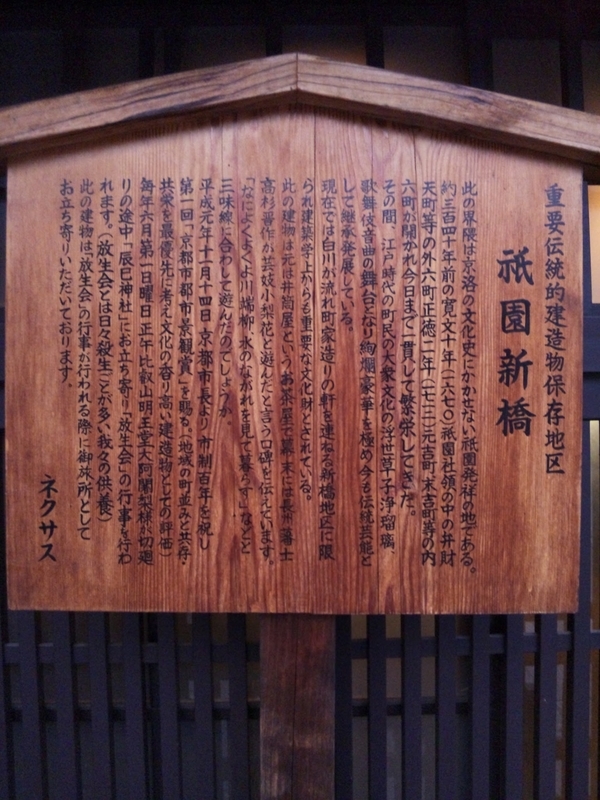 重要伝統的建造物保存地区
祇園新橋
此の界隈は京洛の文化史にかかせない祇園発祥の地である。
約三百四十年前の寛文十年(一六七〇)祇園社領の中の弁財
天町等の外六町正徳二年(一七一二)元吉町、末吉町等の内
六町が開かれ今日まで一貫して繁栄してきた。
その間、江戸時代の町民の大衆文化の浮世草子、浄瑠璃、
歌舞伎音曲の舞台となり絢爛豪華を極め今も伝統芸能と
して継承発展している。
現在では白川が流れ町家造りの軒を連ねる新橋地区に限
られ建築学上からも重要な文化財とされている。
此の建物は元は井筒屋というお茶屋で幕末には長州藩士
高杉晋作が芸妓小梨花と遊んだと言う口碑を伝えています。
「なにをくよくよ川端柳、水のながれを見て暮らす」などと
三味線に合わして遊んだのでしょうか。
平成元年十一月十四日京都市長より市制百年を祝し
第一回「京都市都市景観賞」を賜る。(地域の町並みと共存・
共栄を最優先に考え文化の香り高い建造物としての評価)
毎年六月第一日曜日正午比叡山明王堂大阿闍梨様が切廻
りの途中「辰巳神社」にお立ち寄り「放生会」の行事も行わ
れます。(放生会とは日々殺生ごとが多い我々の供養)
此の建物は「放生会」の行事が行われる際に御旅所として
お立ち寄りいただいております。
ネクサス